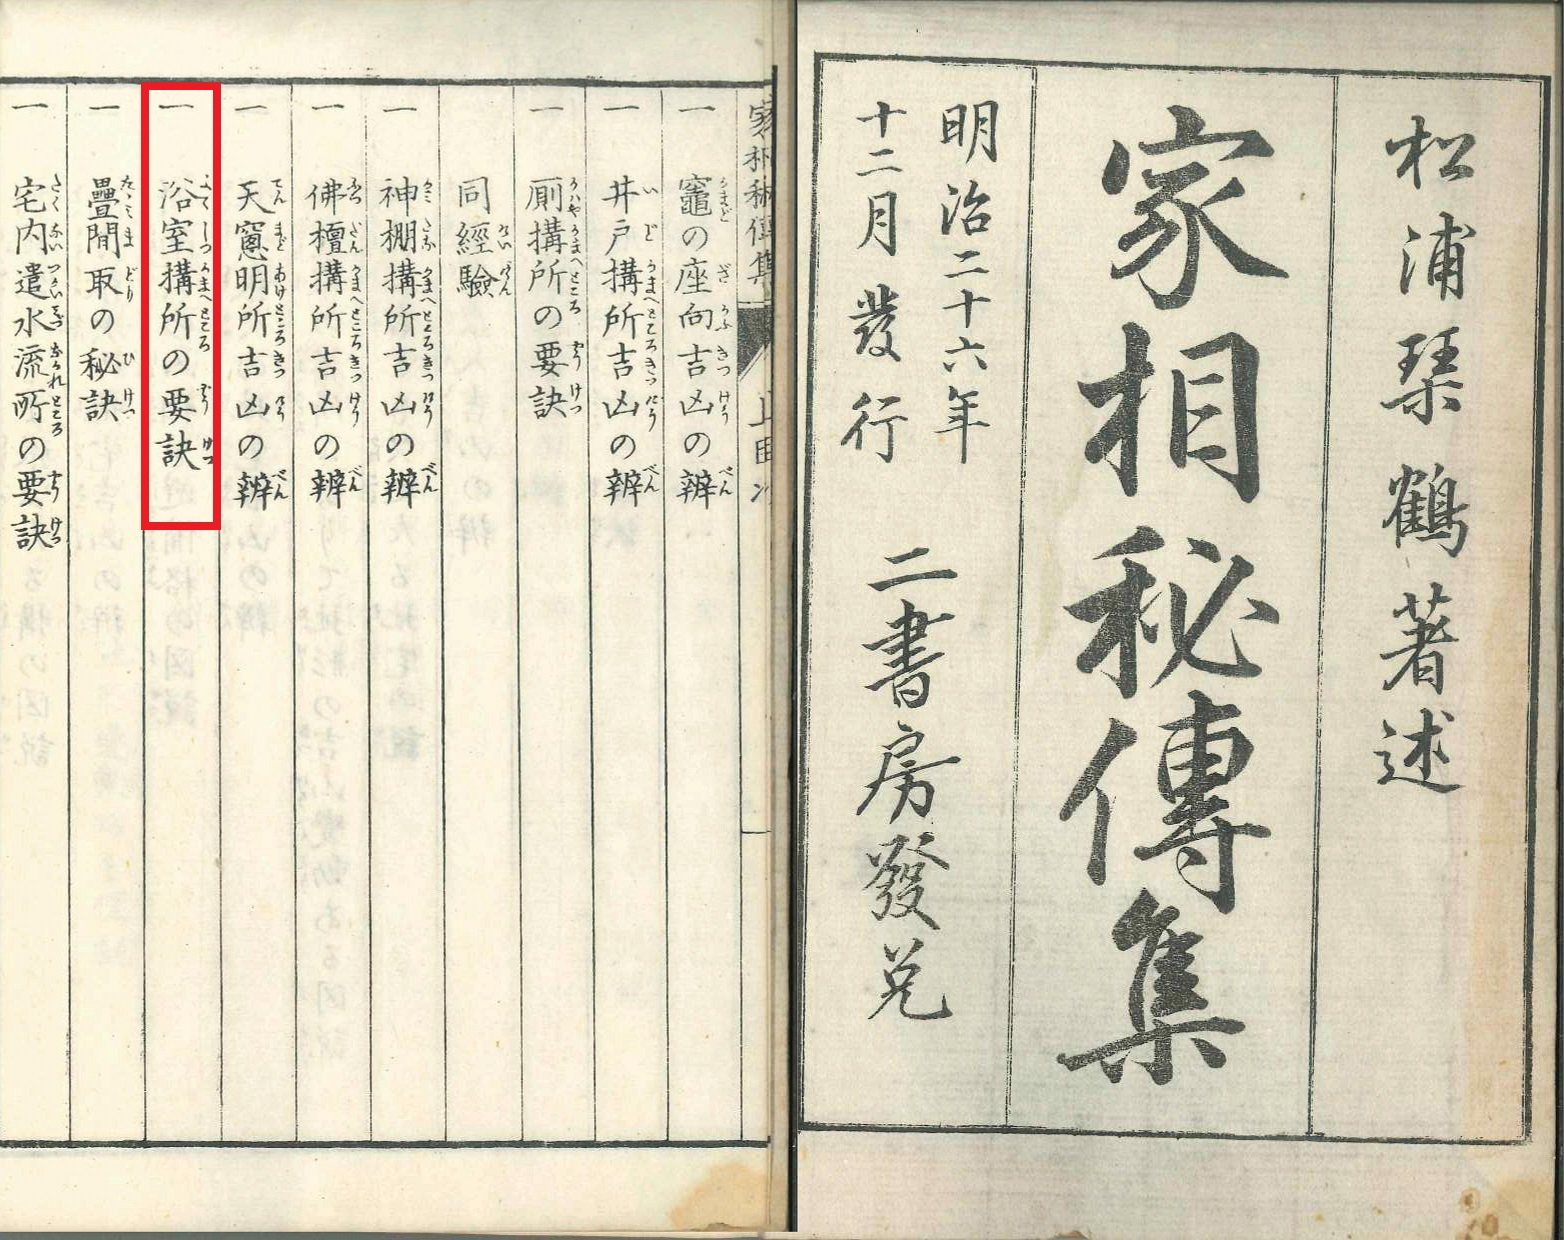 松浦琹鶴著述
家相秘傳集
明治二十六年
十二月發行
二書房發兌
家相秘傳集 上目次
一 竈の座向吉凶の辨
一 井戸搆所吉凶の辨
一 厠搆所の要訣
同經驗
一 神棚搆所吉凶の辨
一 佛檀搆所吉凶の辨
一 天窻明所吉凶の辨
一 浴室搆所の要訣
一 疊間取の秘訣
一 宅内遣水流所の要訣